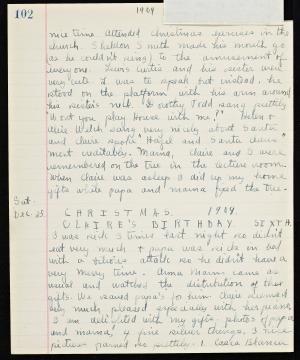 102
1909
nice time. Attended Christmas exercises in the
church. Sheldon Smith made his mouth go
(as he couldn't sing) to the amusement of
every one. Lewis and his sister were
very cute it was to speak but instead, he
stood on the platform with his arm around
his sister's neck. Dorothy Todd sang prettily
"Wont you play House with me?" Helen &
Alice Welch sang very nicely about Santa
and Claire spoke "Hazel and Santa Claus"
most creditably. Mama, Claire and I were
remembered on the tree in the lecture room.
When Claire was asleep I did up my home
gifts while papa and mama fixed the tree.
Sat.
Dec. 25. CHRISTMAS. 1909.
CLAIRE'S BIRTHDAY. SIXTH.
I was sick 3 times last night so didn't
eat very much & papa was sick in bed
with a bilious attack so he didn't have a
very Merry time. Anna Mann came as
usual and watched the distribution of the
gifts. We saved papa's for him. Claire
very much, pleased especially with her piano
I am delighted with my gifts, photos of papa
and mama, 4 fine silver things, 3 nice
pictures framed so prettily.